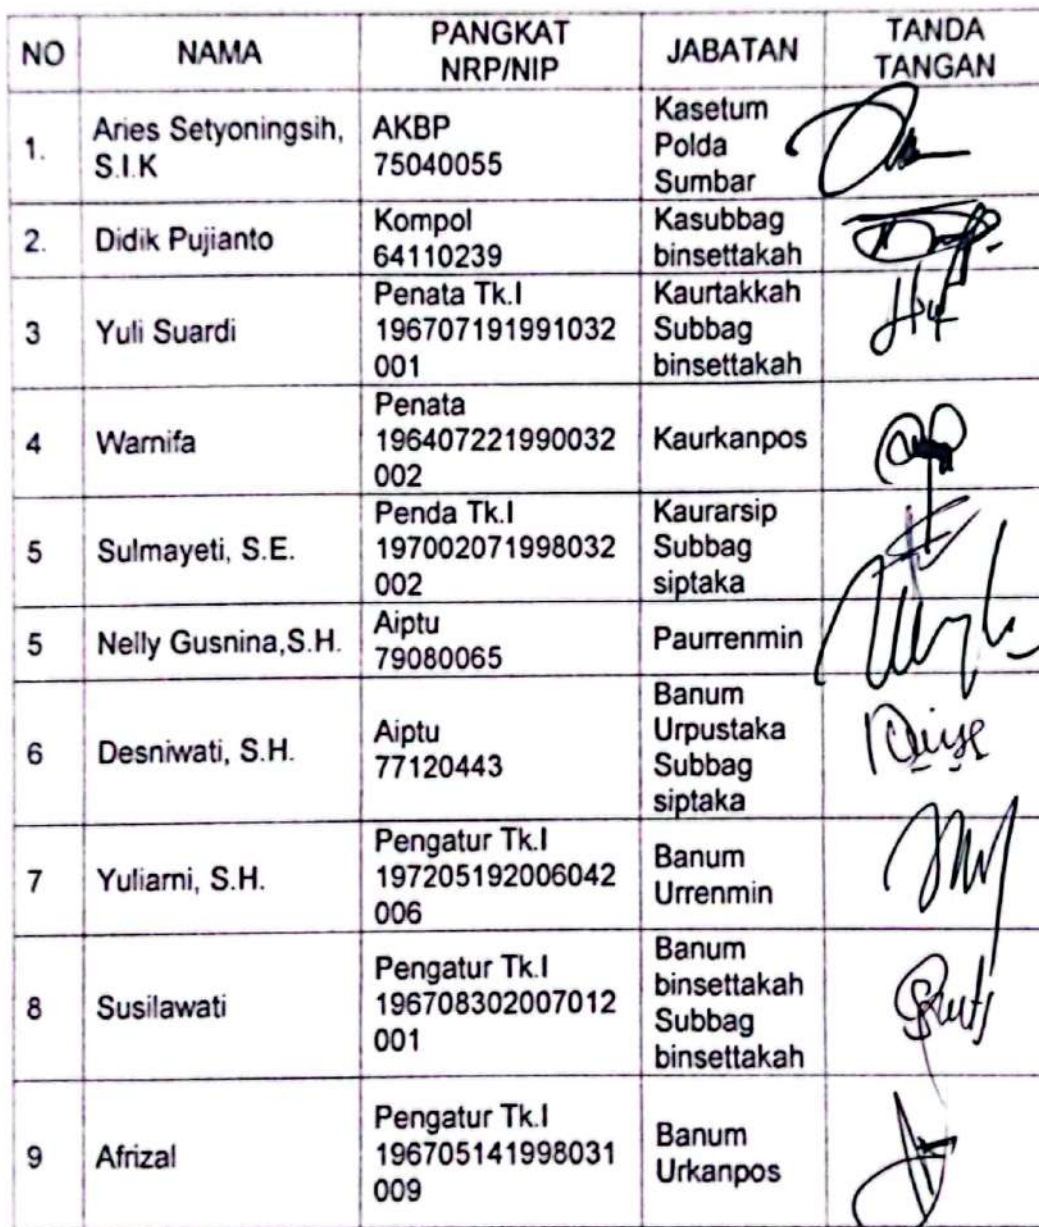 NO NAMA PANGKAT NRP/NIP JABATAN TANDA TANGAN
1. Aries Setyoningsih, S.I.K AKBP 75040055 Kasetum Polda Sumbar
2. Didik Pujianto Kompol 64110239 Kasubbag binsettakah
3 Yuli Suardi Penata Tk.I 196707191991032 001 Kaurtakkah Subbag binsettakah
4 Warnifa Penata 196407221990032 002 Kaurkanpos
5 Sulmayeti, S.E. Penda Tk.I 197002071998032 002 Kaurarsip Subbag siptaka
5 Nelly Gusnina,S.H. Aiptu 79080065 Paurrenmin
6 Desniwati, S.H. Aiptu 77120443 Banum Urpustaka Subbag siptaka
7 Yuliarni, S.H. Pengatur Tk.I 197205192006042 006 Banum Urrenmin
8 Susilawati Pengatur Tk.I 196708302007012 001 Banum binsettakah Subbag binsettakah
9 Afrizal Pengatur Tk.I 196705141998031 009 Banum Urkanpos